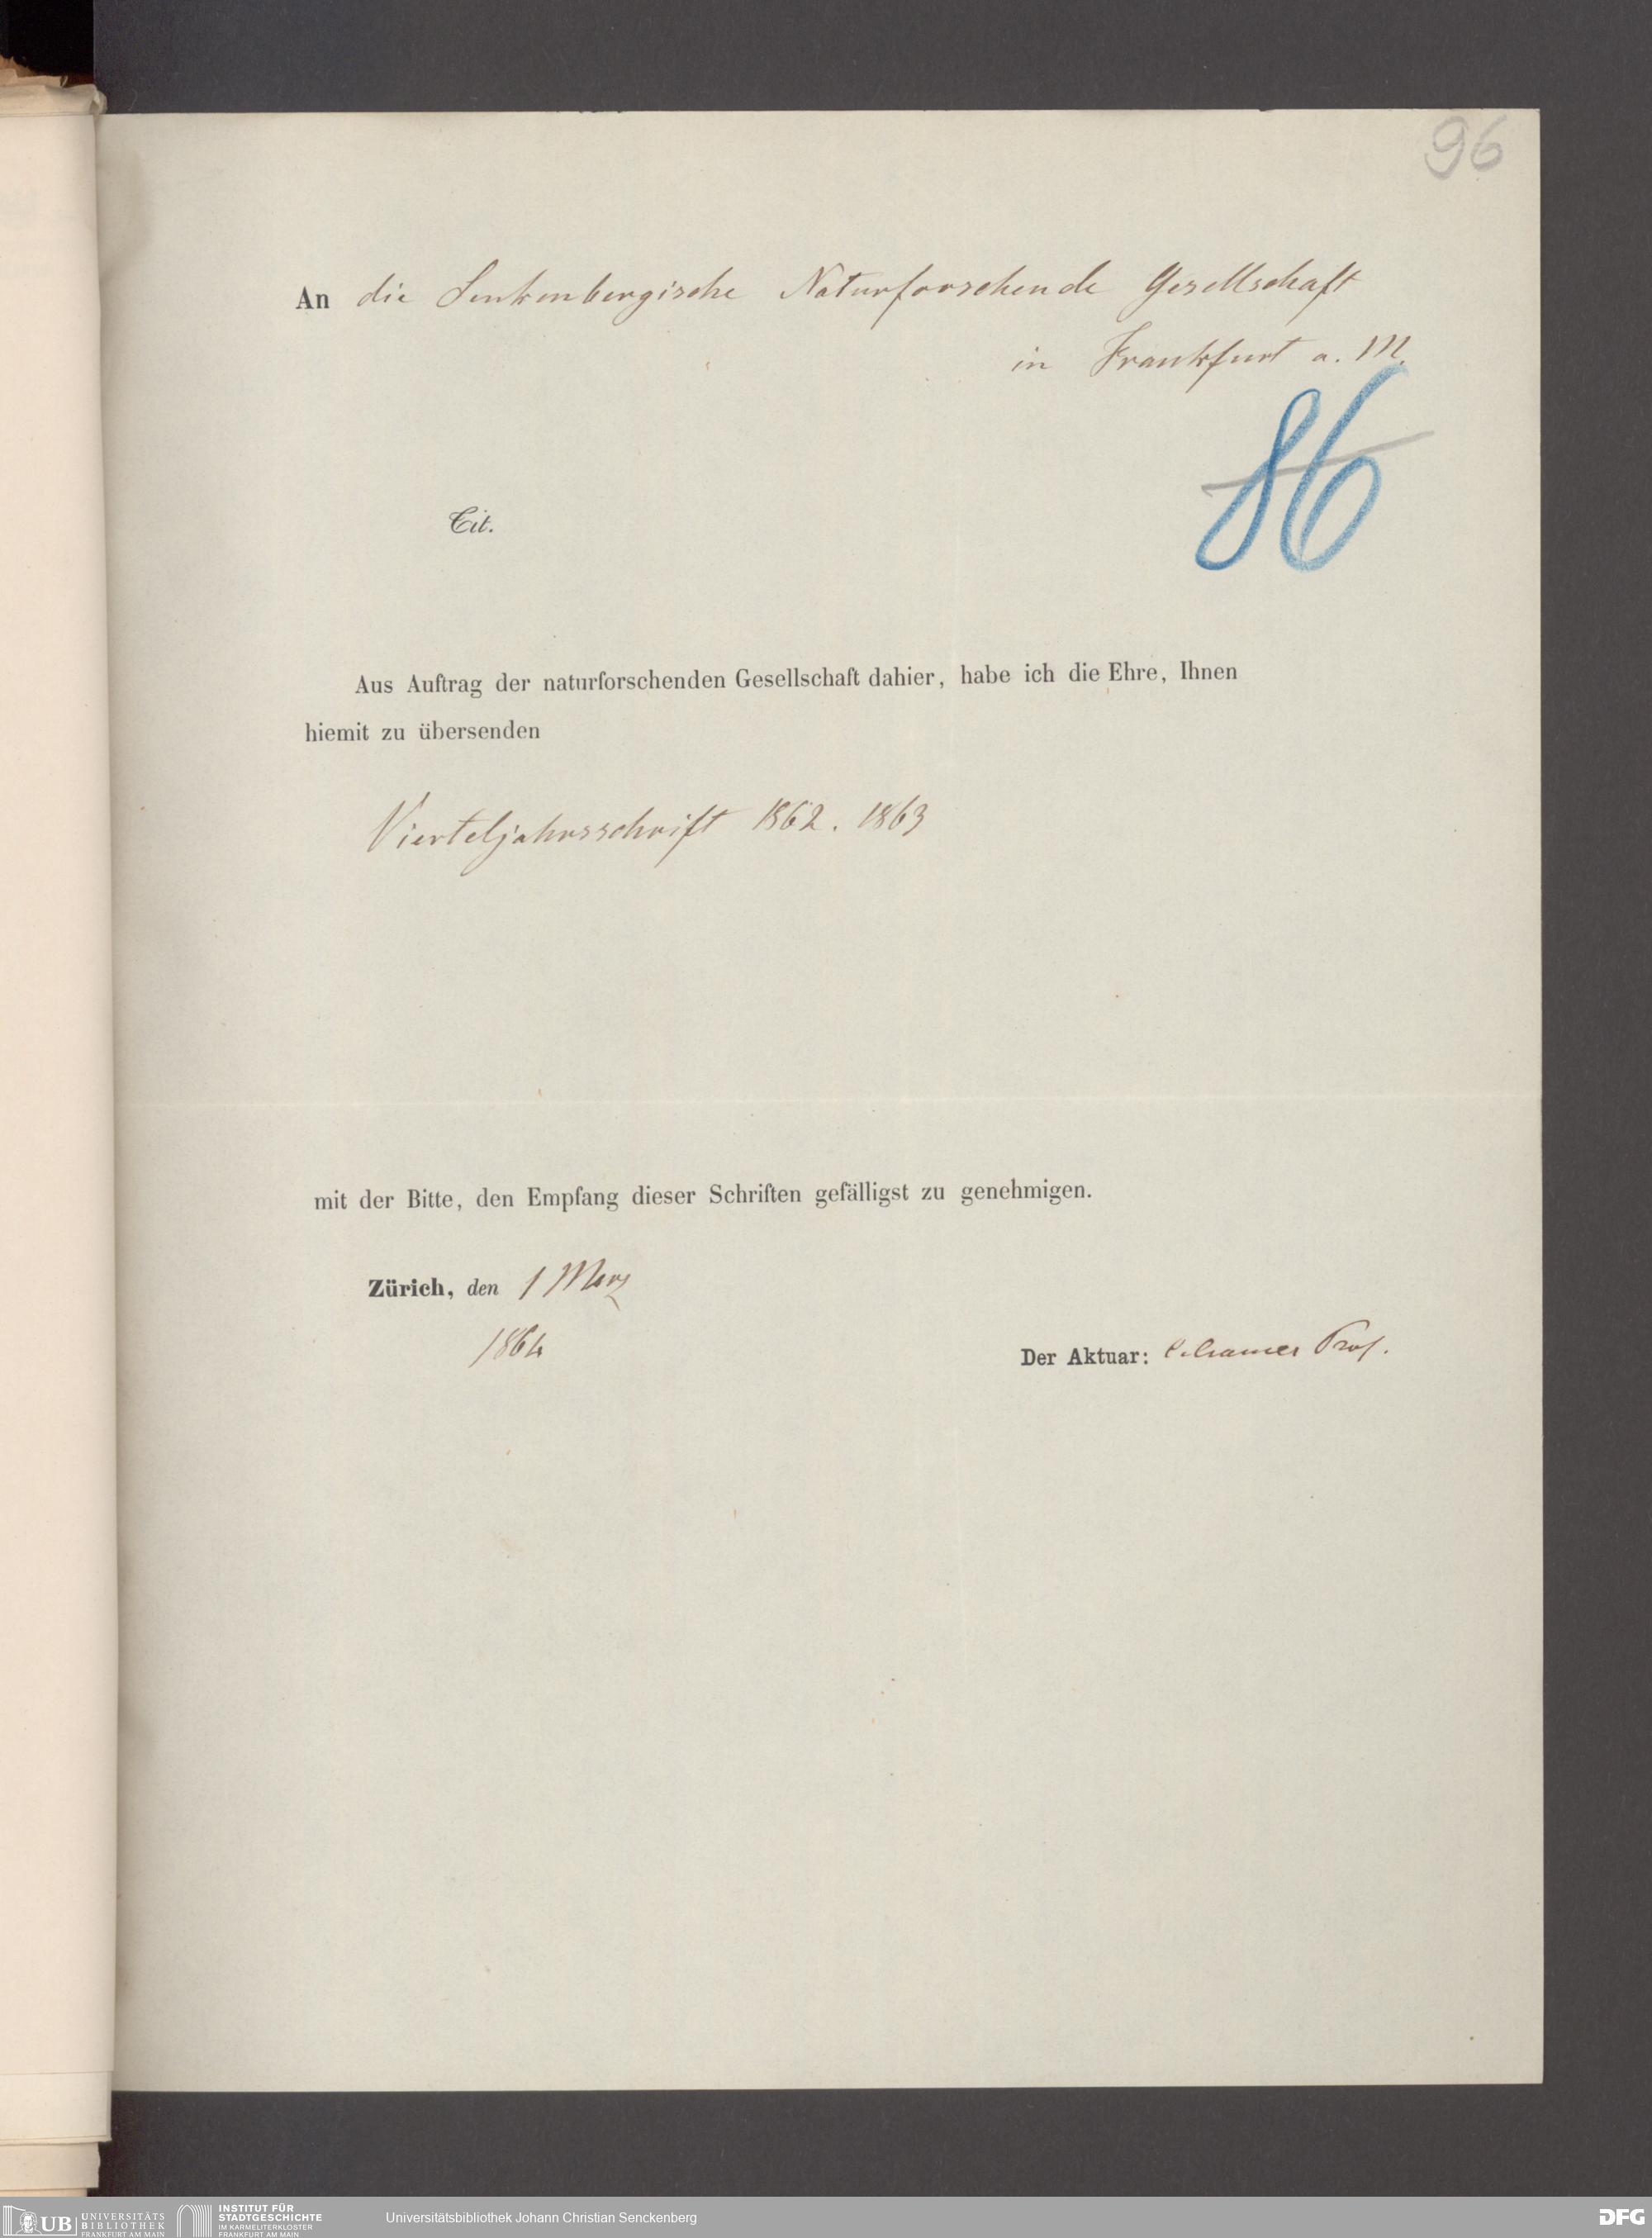 96
An die Senkenbergische Naturforschende Gesellschaft
in Frankfurt a. M.
86
Tit.
Aus Auftrag der naturforschenden Gesellschaft dahier, habe ich die Ehre, Ihnen
hiemit zu übersenden
Vierteljahrsschrift 1862. 1863
mit der Bitte, den Empfang dieser Schriften gefälligst zu genehmigen.
Zürich, den 1 Merz
1864
Der Aktuar: C. Cramer Prof.
UB UNIVERSITÄTS BIBLIOTHEK FRANKFURT AM MAIN
INSTITUT FÜR STADTGESCHICHTE IM KARMELITERKLOSTER FRANKFURT AM MAIN
Universitätsbibliothek Johann Christian Senckenberg
DFG